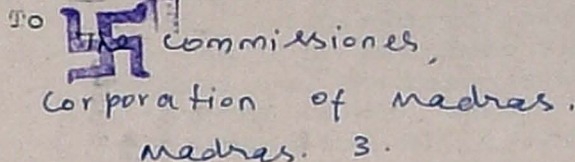 To
The Commissioner,
Corporation of Madras.
Madras. 3.